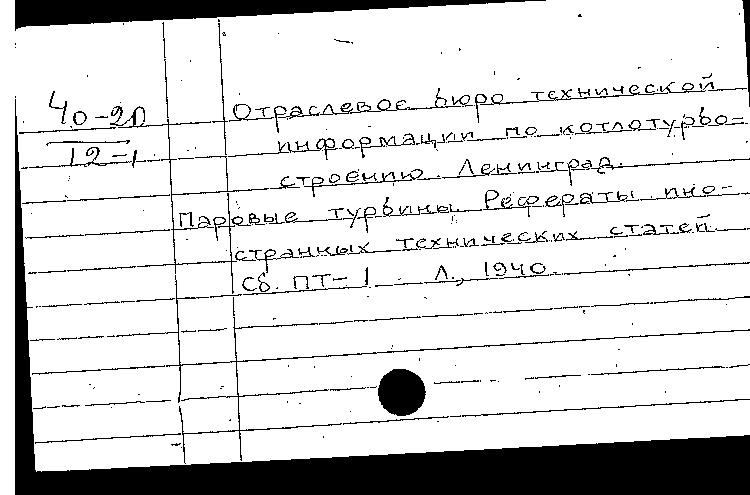 40-20
12-1
Отраслевое бюро технической
информации по котлотурбо=
строению. Ленинград.
Паровые турбины. Рефераты ино-
странных технических статей.
Сб. ПТ-1. Л., 1940.